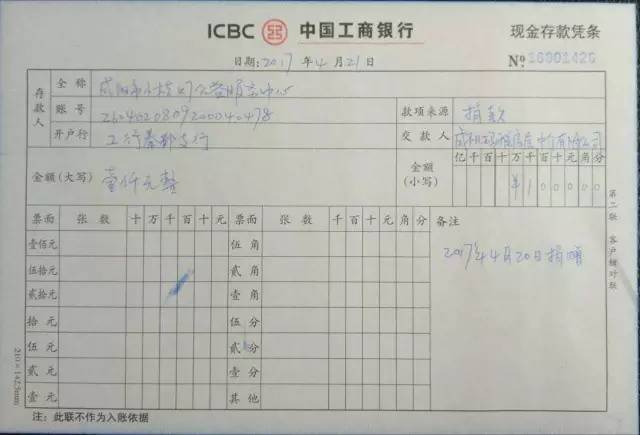 ICBC 中国工商银行 现金存款凭条
日期:2017 年 4 月 21 日 №16901426
存款人
全称 咸阳市小
账号 2604020809200040478
开户行 工行秦都支行
款项来源 捐款
交款人 有限公司
金额(大写) 壹仟元整
金额(小写) 亿千百十万千百十元角分
¥100000
票面 张数 十万千百十元 票面 张数 千百十元角分 备注
壹佰元 伍角
伍拾元 贰角
贰拾元 壹角
拾元 伍分
伍元 贰分
贰元 壹分
壹元 其他
2017年4月20日捐赠
第二联 客户核对联
210×142.5mm
注:此联不作为入账依据